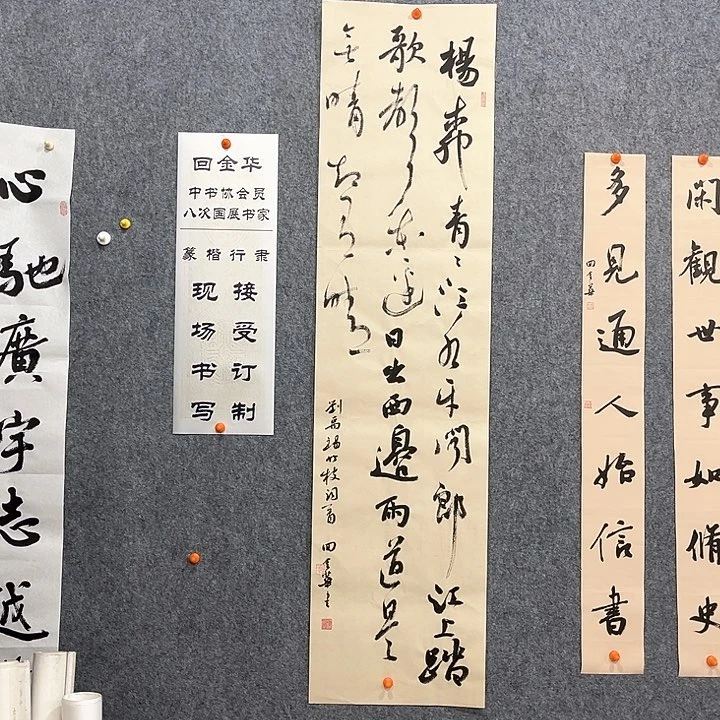 心馳廣宇志越
回金华
中书协会员
八次国展书家
篆楷行隶
现场书写
接受订制
楊柳青〻江水平聞郎江上踏
歌聲東邊日出西邊雨道是
無晴却有晴
劉禹錫竹枝詞一首 回金華書
閑觀世事如脩史
多見通人始信書
回金華